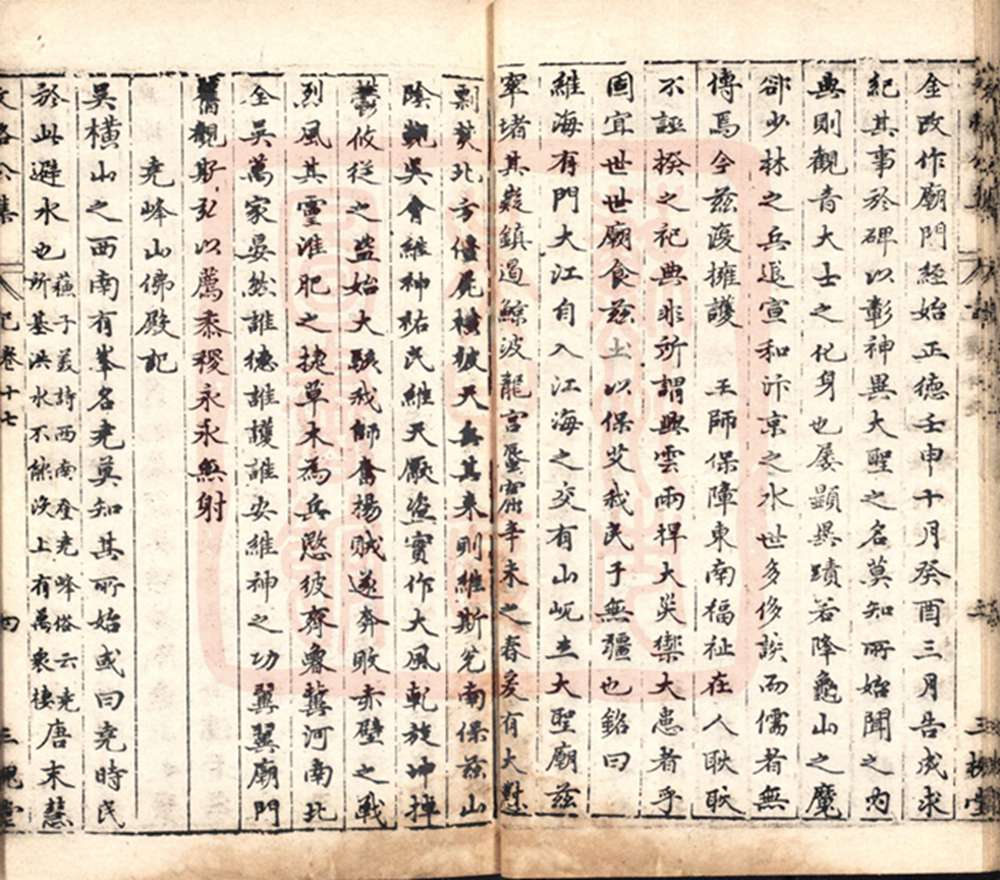 金改作廟門經始正德壬申十月癸酉三月告成求
紀其事於碑以彰神異大聖之名莫知所始聞之內
典則觀音大士之化身也屢顯異蹟若降龜山之魔
卻少林之兵退宣和汴京之水世多侈談而儒者無
傳焉今茲陰擁護 王師保障東南福祉在人耿耿
不誣揆之祀典非所謂興雲雨捍大災禦大患者乎
固宜世世廟食茲土以保艾我民于無疆也銘曰
維海有門大江自入江海之交有山屹立大聖廟茲
窣堵其嶷鎮遏鯨波龍宮蜃窟辛未之春爰有大懟
剽焚北方僵屍橫被天兵其來則維斯先南保茲山
陰覬吳會維神祐民維天厭盜實作大風乾旋坤掉
攸從之盜始大駭我師奮揚賊遂奔敗赤壁之戰
烈風其靈淮肥之捷草木為兵愍彼齊魯冀河南北
全吳萬家晏然誰德誰護誰安維神之功翼翼廟門
舊觀斯弘以薦黍稷永永無射
堯峰山佛殿記
吳橫山之西南有峯名堯莫知其所始或曰堯時民
於此避水也蘇子美詩西南登堯峰俗云堯所基洪水不能沒上有萬衆棲唐末慧
文恪公集 記卷十七 四 三槐堂